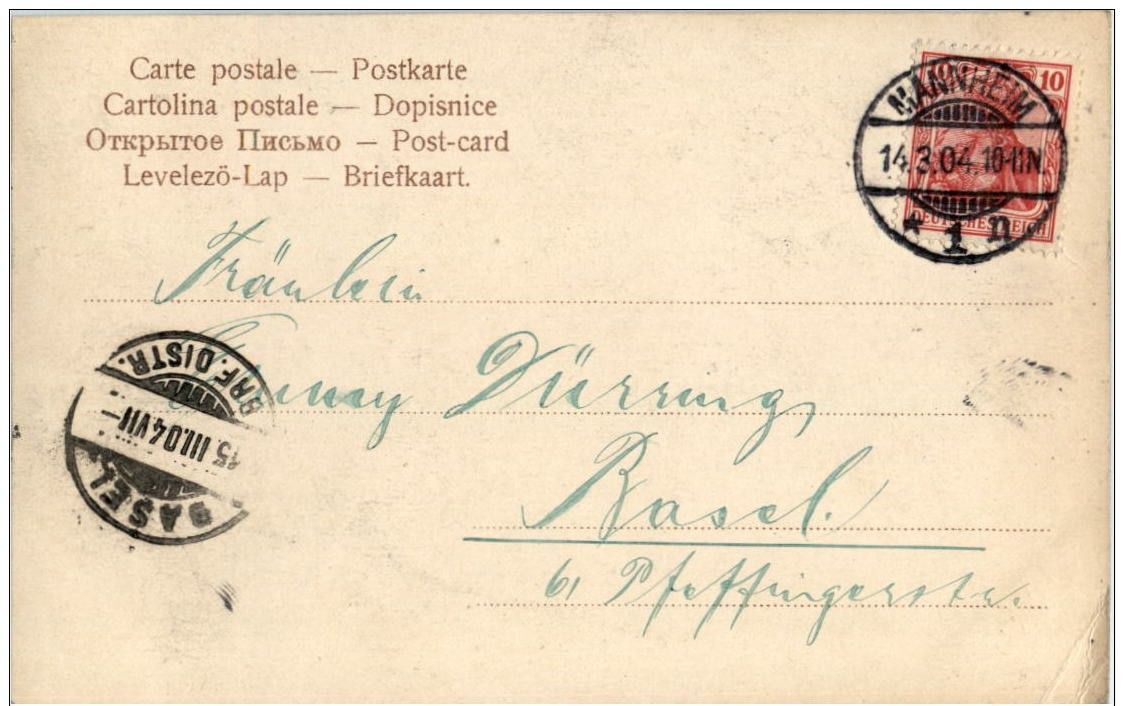 Carte postale — Postkarte
Cartolina postale — Dopisnice
Открытое Письмо — Post-card
Levelezö-Lap — Briefkaart.
10 10
DEUTSCHES REICH
MANNHEIM
14.3.04.10-11N.
* 1 n
Fräulein
Dürring
Basel.
61 Pfeffingerstr.
BASEL
15.III.04.VII—
BRF. DISTR.